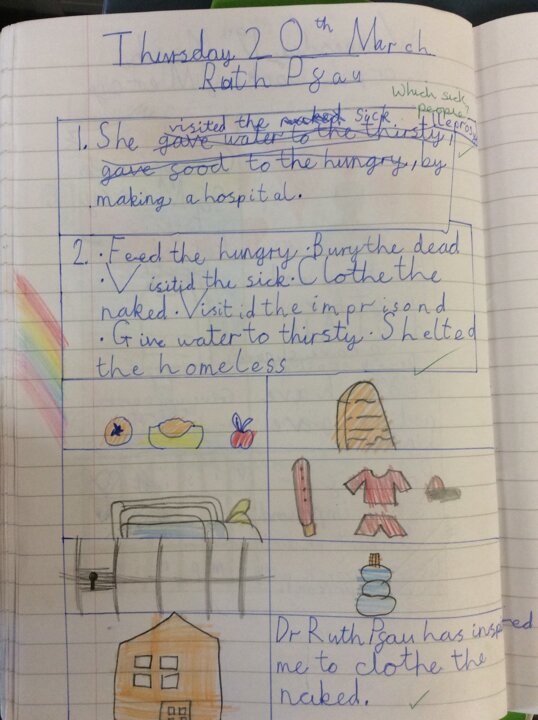 Thursday 20th March
Ruth Pgau
Which sick
people?
visited the naked sick leprosy
1. She gave water to the thirsty,
gave food to the hungry, by
making a hospital.
2. · Feed the hungry · Bury the dead
· Visitid the sick · Clothe the
naked · Visit id the imprisond
· Give water to thirsty · Shelted
the homeless
Dr Ruth Pgau has inspired
me to clothe the
naked.